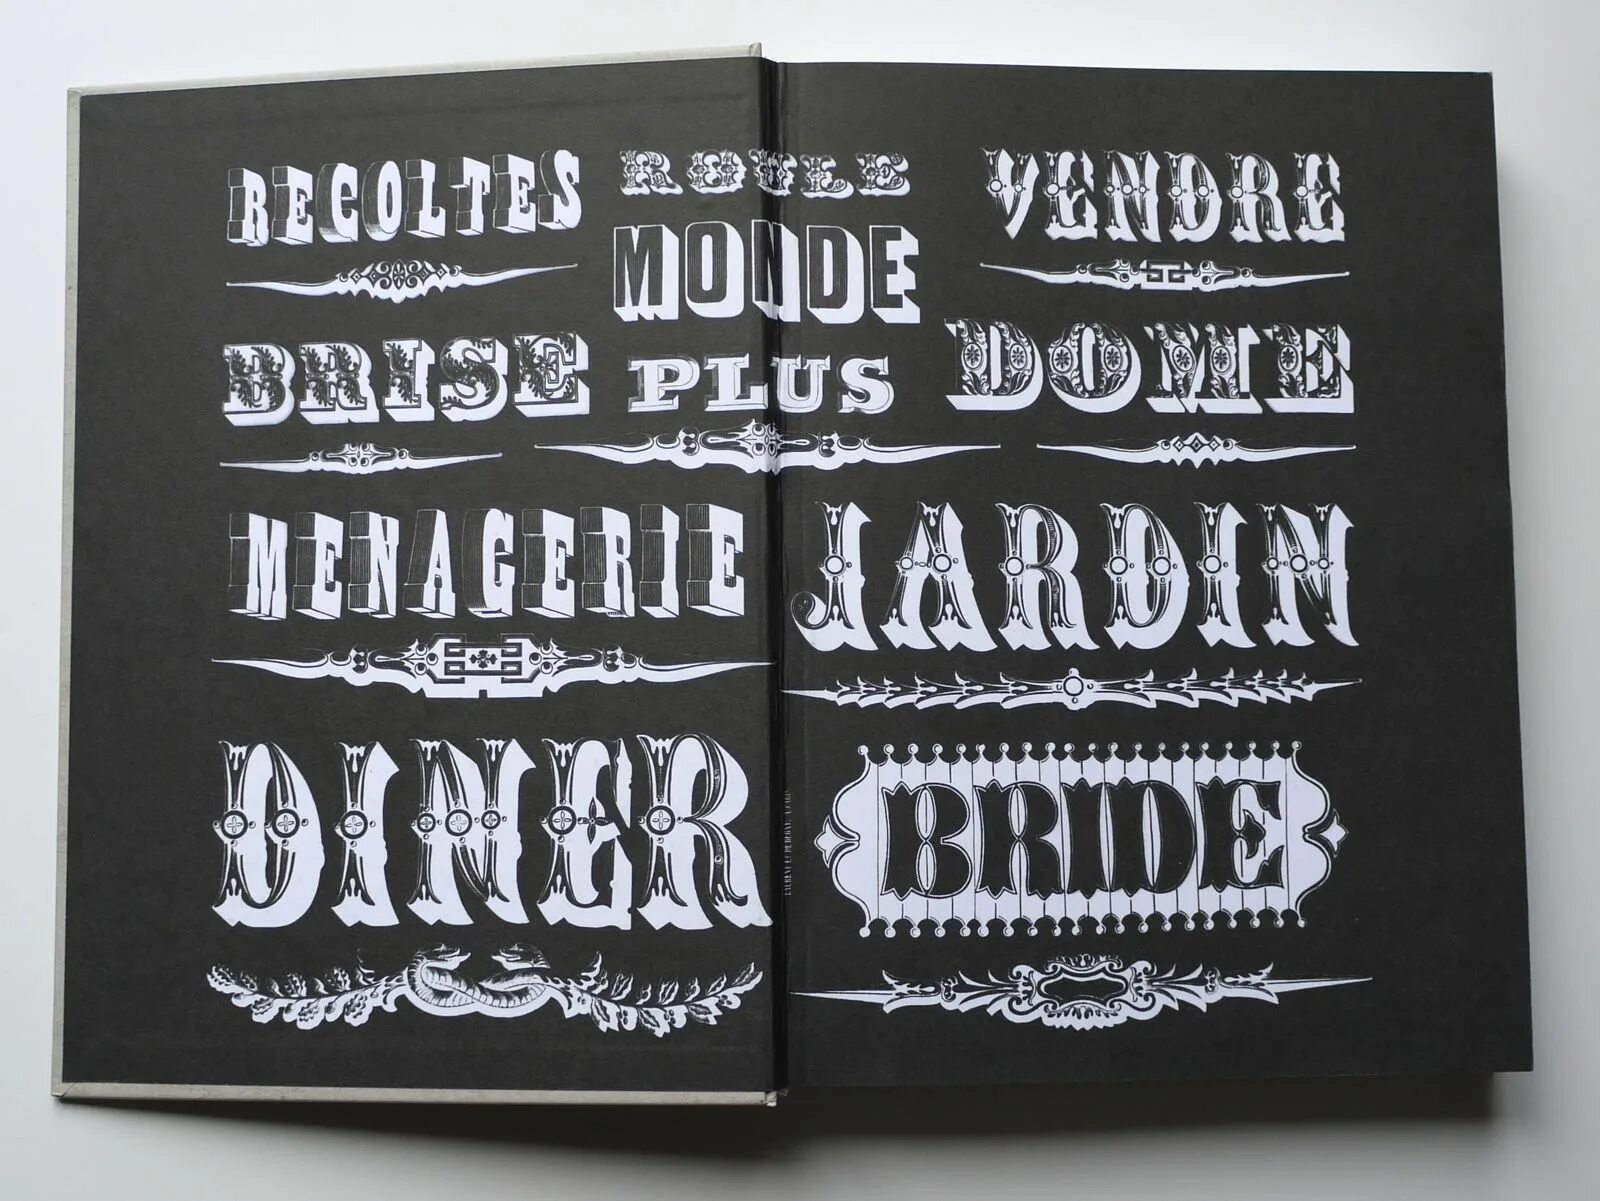 RECOLTES
ROULE
VENDRE
MONDE
BRISE
PLUS
DOME
MENAGERIE
JARDIN
DINER
BRIDE